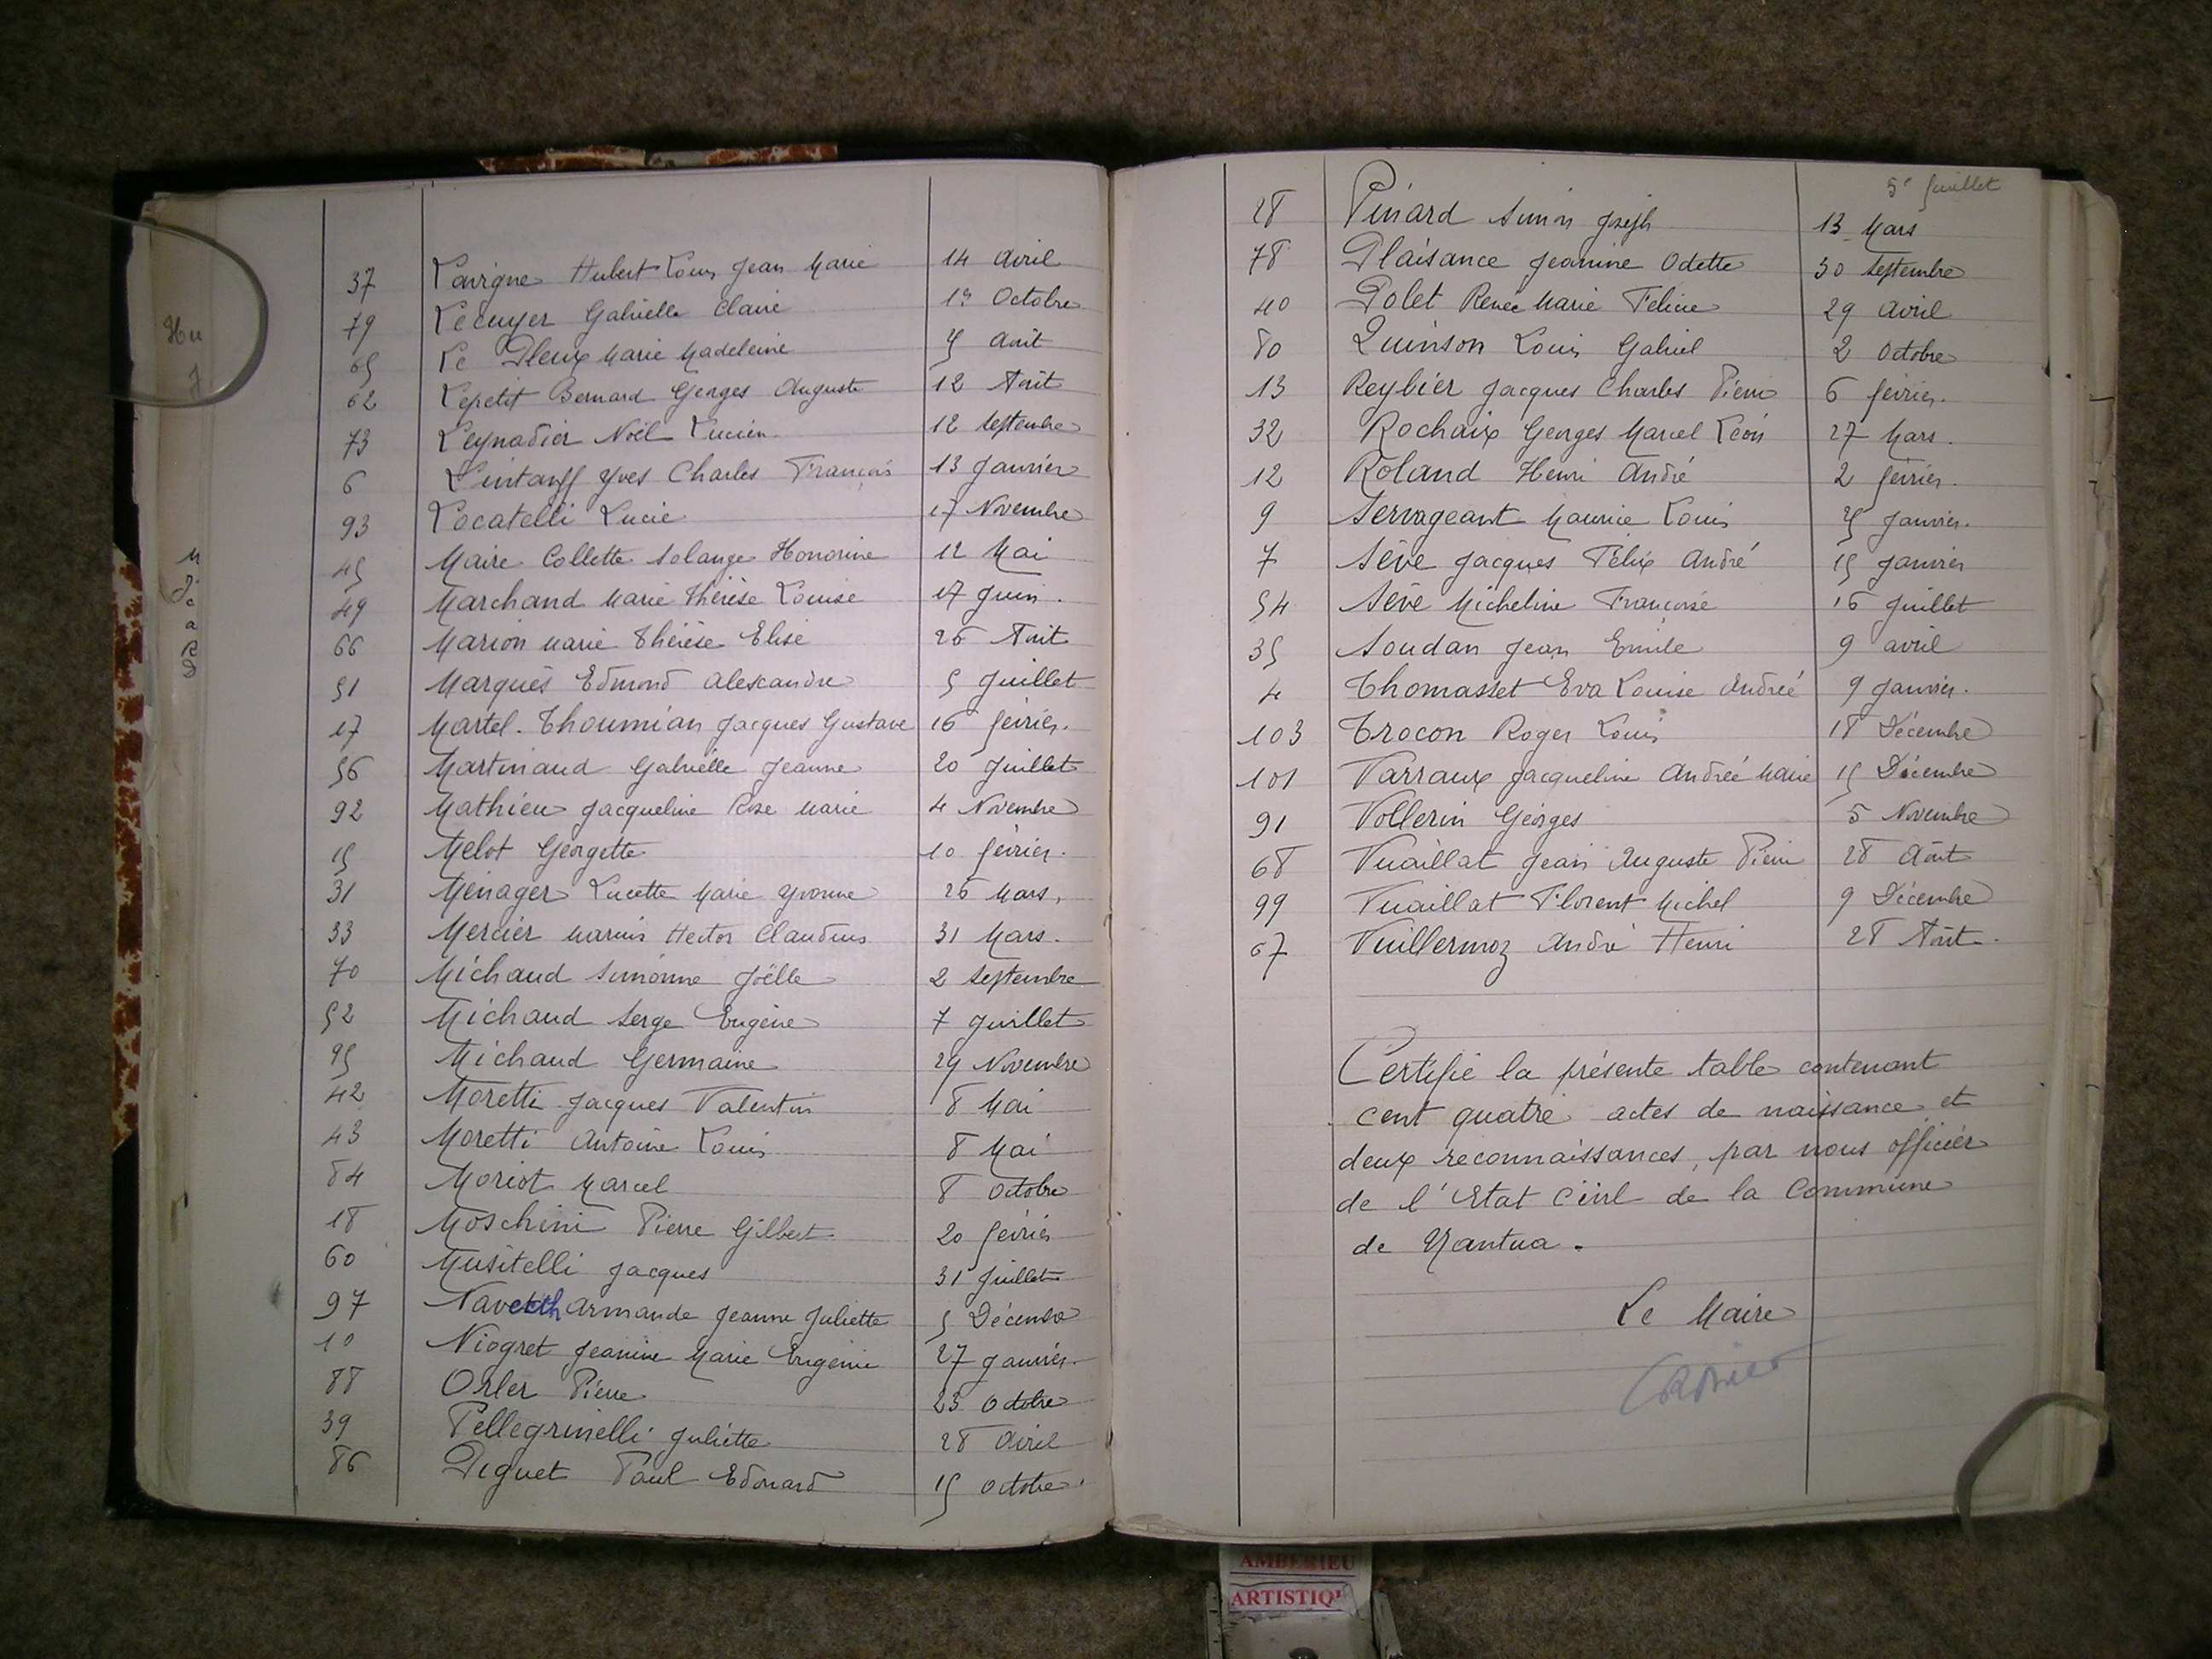 37 Lavigne Hubert Louis Jean Marie 14 Avril
79 Lecuyer Gabrielle Claire 1 Octobre
65 Le Pleux Marie Madeleine Août
62 Lepetit Bernard Georges Auguste 12 Août
73 Leynadier Noël Lucien 12 Septembre
6 Lintanff Yves Charles François 13 Janvier
93 Locatelli Lucie 17 Novembre
45 Maire Collette Solange Honorine 12 Mai
49 Marchand Marie Thérèse Louise 17 Juin.
66 Marion Marie Thérèse Elise 26 Août
51 Marquès Edmond Alexandre 5 Juillet
17 Martel-Thoumian Jacques Gustave 16 février.
56 Martinand Gabrielle Jeanne 20 Juillet
92 Mathieu Jacqueline Rose Marie 4 Novembre
15 Melot Georgette 10 février.
31 Ménager Lucette Marie Yvonne 26 Mars.
33 Mercier Marius Hector Claudius 31 Mars.
70 Michaud Simonne Joëlle 2 Septembre
52 Michaud Serge Eugène 7 Juillet
95 Michaud Germaine 29 Novembre
42 Moretti Jacques Valentin 8 Mai
43 Moretti Antoine Louis 8 Mai
84 Moriot Marcel 8 Octobre
18 Moschini Pierre Gilbert 20 février
60 Musitelli Jacques 31 Juillet
97 Armande Jeanne Juliette 5 Décembre
10 Niogret Jeanine Marie Eugénie 27 Janvier.
88 Orler Pierre 23 Octobre
39 Pellegrinelli Juliette 28 Avril
86 Piguet Paul Edouard 15 Octobre.
5e feuillet
28 Pinard Simon Joseph 13 Mars
78 Plaisance Jeanine Odette 30 Septembre
40 Polet Renée Marie Félicie 29 Avril
80 Quinson Louis Gabriel 2 Octobre
13 Reybier Jacques Charles Pierre 6 février.
32 Rochaix Georges Marcel Léon 27 Mars.
12 Roland Henri André 2 février.
9 Servageant Maurice Louis 25 Janvier.
7 Sève Jacques Félix André 15 Janvier
54 Sève Micheline Françoise 16 Juillet
35 Soudan Jean Emile 9 avril
4 Thomasset Eva Louise Andrée 9 Janvier.
103 Trocon Roger Louis 18 Décembre
101 Varraux Jacqueline Andrée Marie 15 Décembre
91 Vollerin Georges 5 Novembre
68 Vuaillat Jean Auguste Pierre 28 Août
99 Vuaillat Florent Michel 9 Décembre
67 Vuillermoz André Henri 28 Août.
Certifié la présente table contenant
cent quatre actes de naissance et
deux reconnaissances, par nous officier
de l'Etat Civil de la Commune
de Nantua.
Le Maire
AMBERIEU
ARTISTIQ